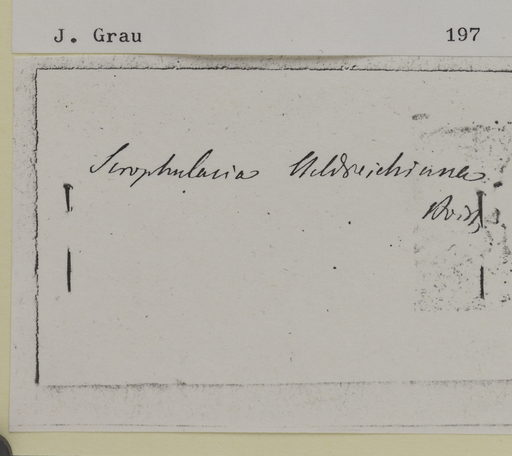 J. Grau 197
Scrophularia Heldreichiana
Boiss